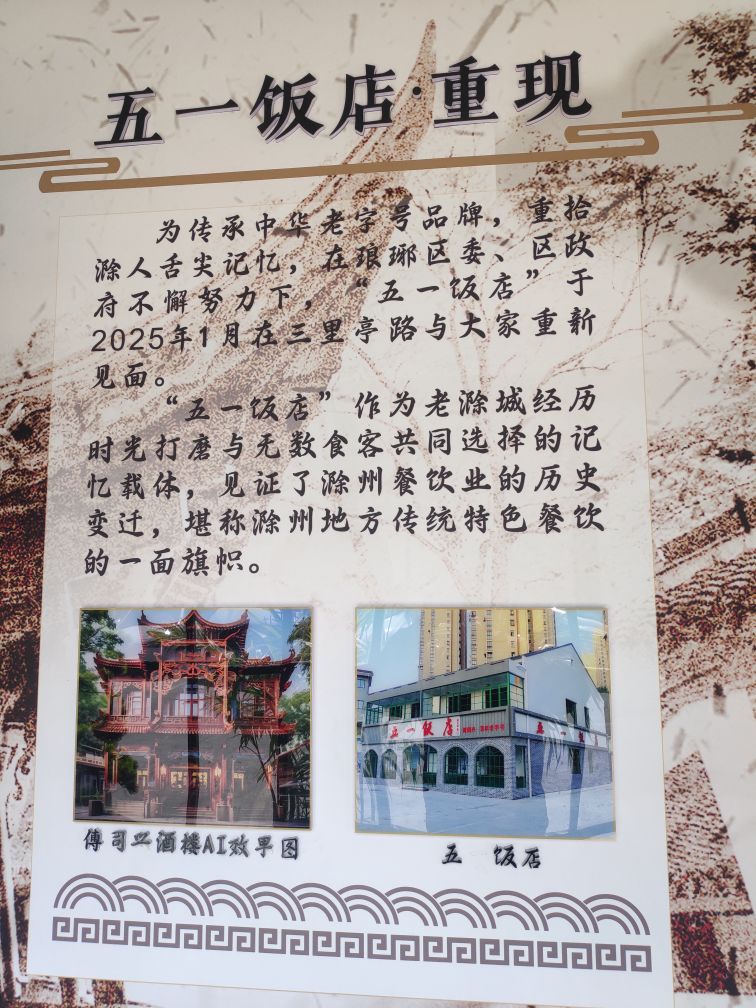 五一饭店·重现
为传承中华老字号品牌，重拾
滁人舌尖记忆，在琅琊区委、区政
府不懈努力下，“五一饭店”于
2025年1月在三里亭路与大家重新
见面。
“五一饭店”作为老滁城经历
时光打磨与无数食客共同选择的记
忆载体，见证了滁州餐饮业的历史
变迁，堪称滁州地方传统特色餐饮
的一面旗帜。
五一饭店
五一
酒楼AI效果图
五一饭店